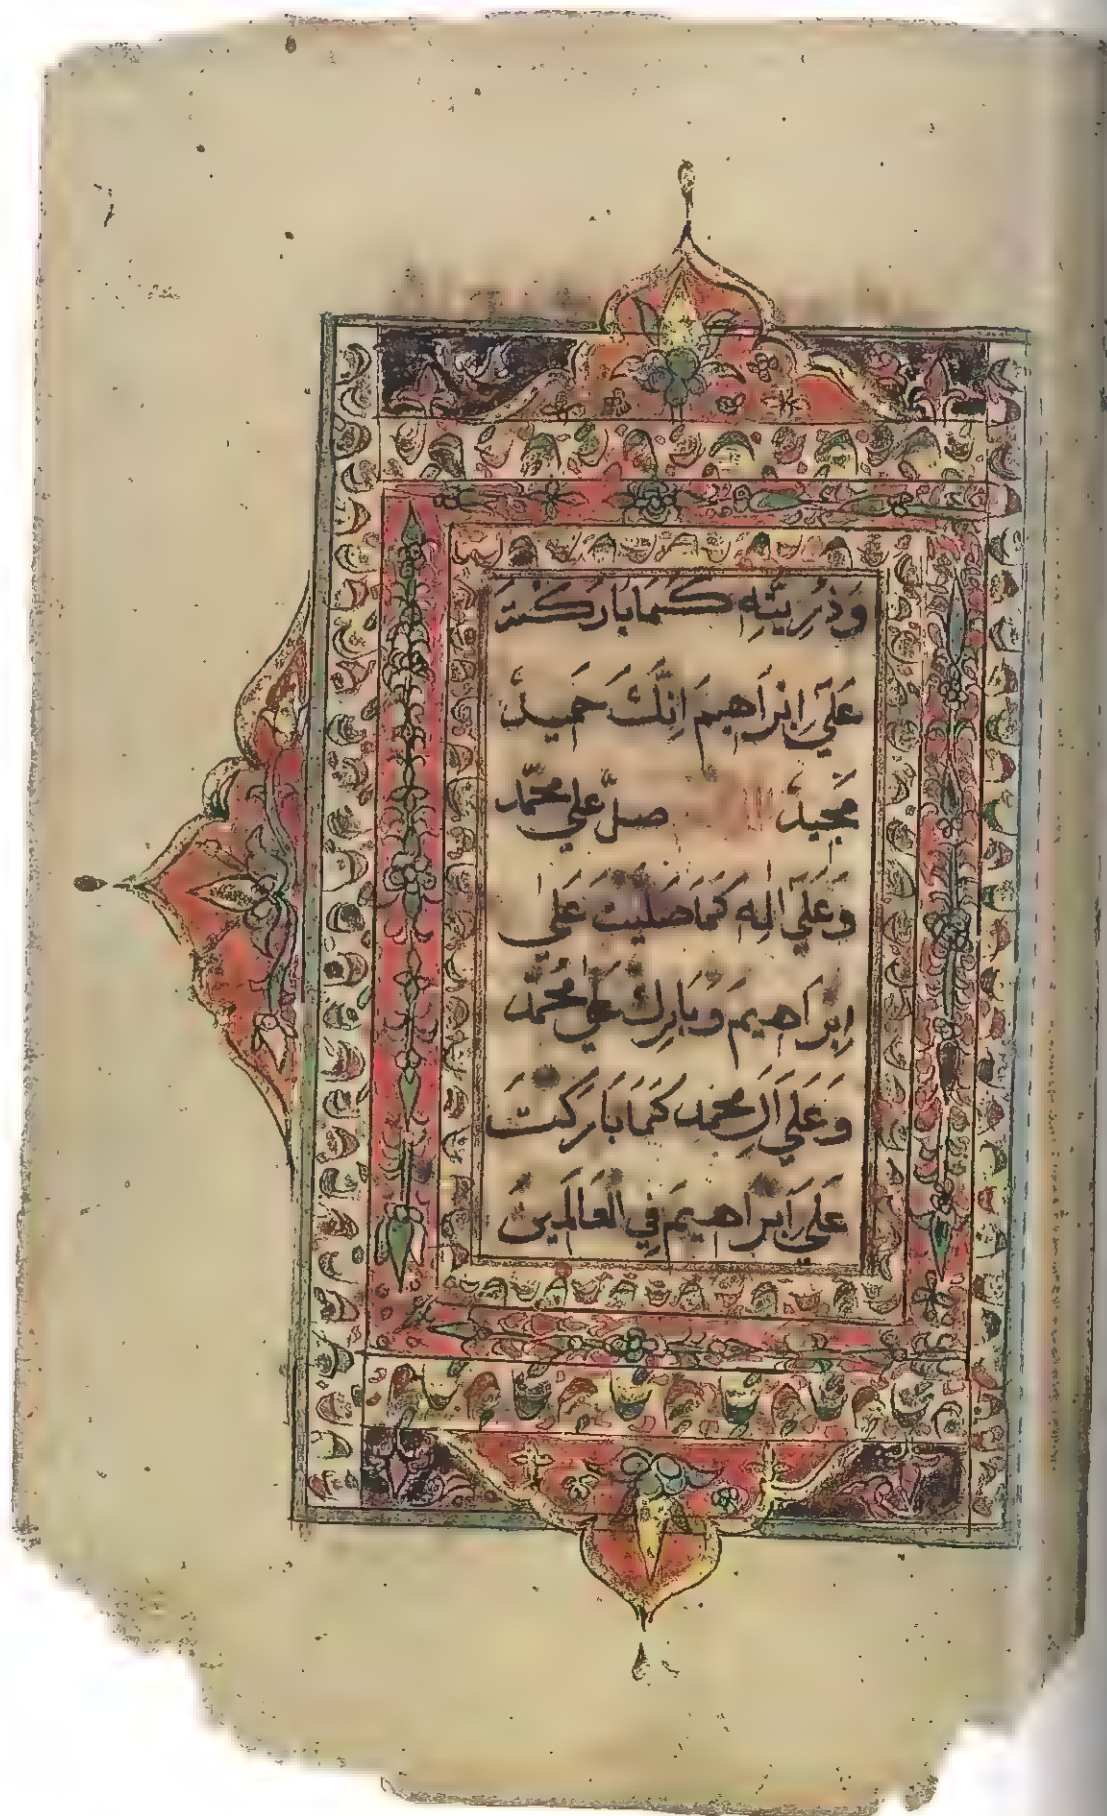 وَذُرِّيَّتِهِ كَمَا بَارَكْتَ
عَلَىٰ إِبْرَاهِيمَ إِنَّكَ حَمِيدٌ
مَجِيدٌ صلِّ علي محمّد
وَعَلَىٰ اٰلِهِ كَمَا صَلَّيْتَ عَلَىٰ
اِبْرَاهِيمَ وَبَارِكْ عَلَىٰ مُحَمَّدٍ
وَعَلَي اٰلِ مُحَمَّدٍ كَمَا بَارَكْتَ
عَلَىٰ اِبْرَاهِيمَ فِي الْعَالَمِينَ